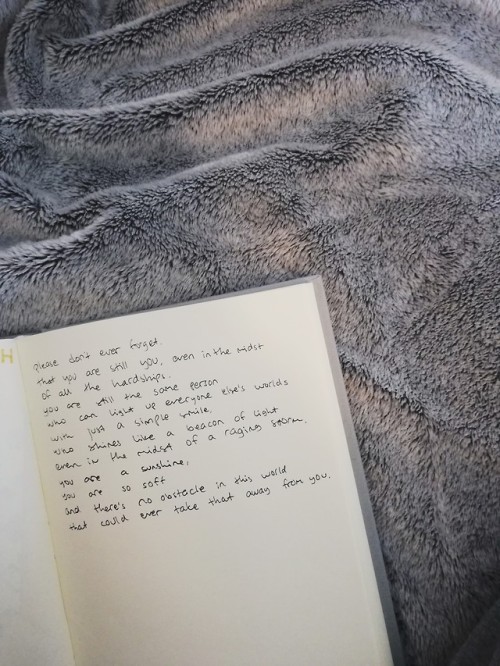 H
please don't ever forget.
that you are still you, even in the midst
of all the hardships.
you are still the same person
who can light up everyone else's worlds
with just a simple smile,
who shines like a beacon of light
even in the midst of a raging storm.
you are a sunshine,
you are so soft
and there's no obstacle in this world
that could ever take that away from you.